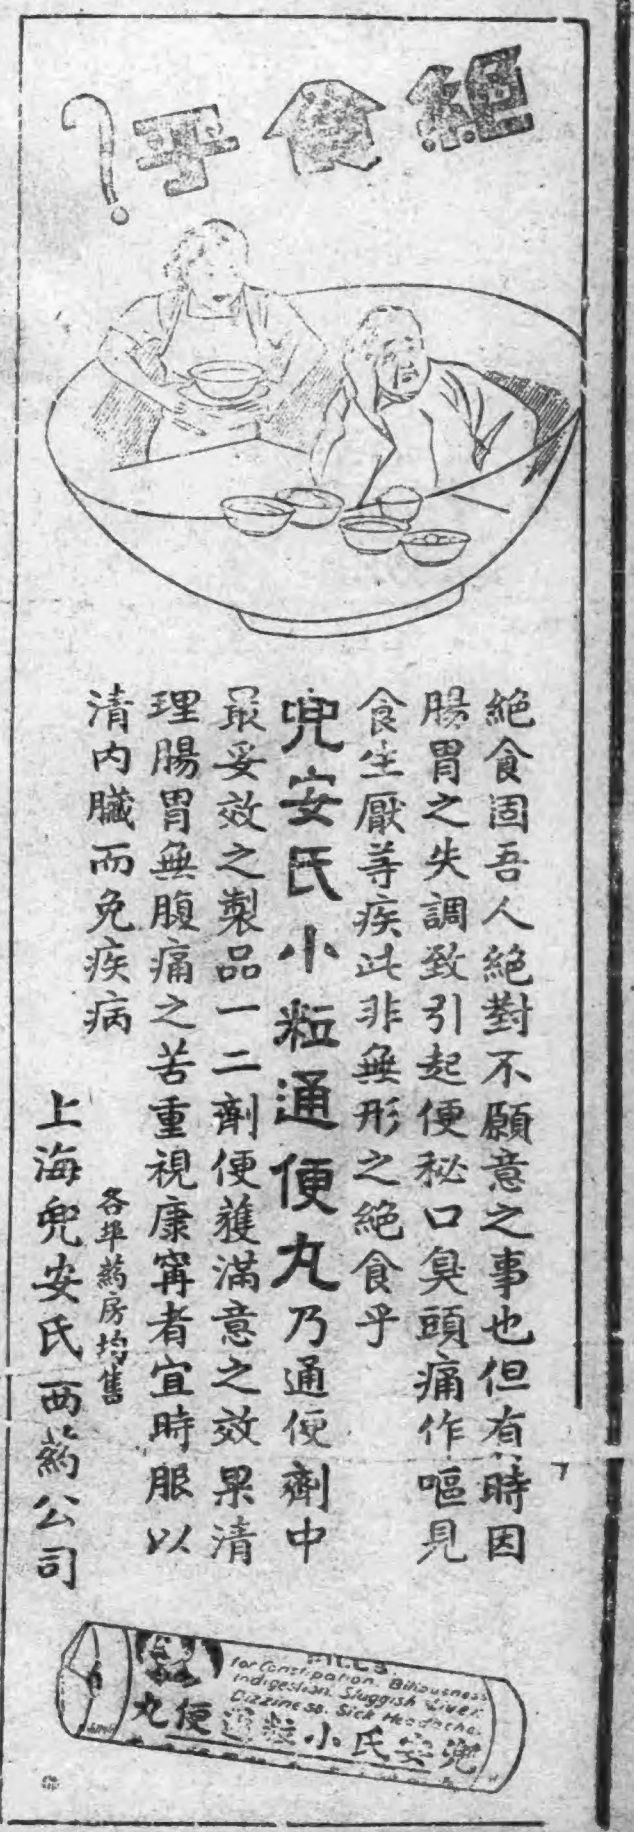 絕食乎?
絕食固吾人絕對不願意之事也但有時因
腸胃之失調致引起便秘口臭頭痛作嘔見
食生厭等疾此非無形之絕食乎
兜安氏小粒通便丸乃通便劑中
最妥效之製品一二劑便獲滿意之效果清
理腸胃無腹痛之苦重視康寧者宜時服以
清內臟而免疾病
各埠葯房均售
上海兜安氏西葯公司
PILLS
for Constipation. Biliousness
Indigestion. Sluggish Liver.
Dizziness. Sick Headache.
兜安氏小粒通便丸